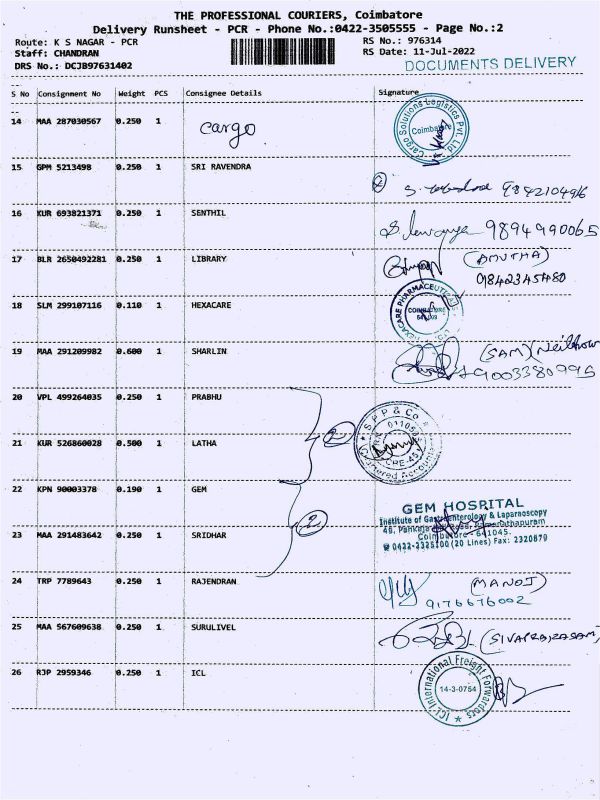 THE PROFESSIONAL COURIERS, Coimbatore
Delivery Runsheet - PCR - Phone No.:0422-3505555 - Page No.:2
Route: K S NAGAR - PCR RS No.: 976314
Staff: CHANDRAN RS Date: 11-Jul-2022
DRS No.: DCJB97631402 DOCUMENTS DELIVERY
S No Consignment No Weight PCS Consignee Details Signature
14 MAA 287030567 0.250 1 cargo
Cargo Solutions Logistics Pvt. Ltd
Coimbatore
15 GPM 5213498 0.250 1 SRI RAVENDRA
9842104916
16 KUR 693821371 0.250 1 SENTHIL
9894990065
17 BLR 2650492281 0.250 1 LIBRARY (AMUTHA)
9842345480
18 SLM 299107116 0.110 1 HEXACARE
HEXACARE PHARMACEUTICALS
19 MAA 291209982 0.600 1 SHARLIN (SAM)
9003380995
20 VPL 499264035 0.250 1 PRABHU
S P P & Co
Chartered Accounts
21 KUR 526860028 0.500 1 LATHA
22 KPN 90003378 0.190 1 GEM
2
GEM HOSRITAL
Institute of Gastroenterology & Laparoscopy
23 MAA 291483642 0.250 1 SRIDHAR
Coimbatore - 641045.
0422-2325100 (20 Lines) Fax: 2320879
24 TRP 7789643 0.250 1 RAJENDRAN (MANOJ)
9176676002
25 MAA 567609638 0.250 1 SURULIVEL
26 RJP 2959346 0.250 1 ICL
ICL International Freight Forwarders
14-3-0754